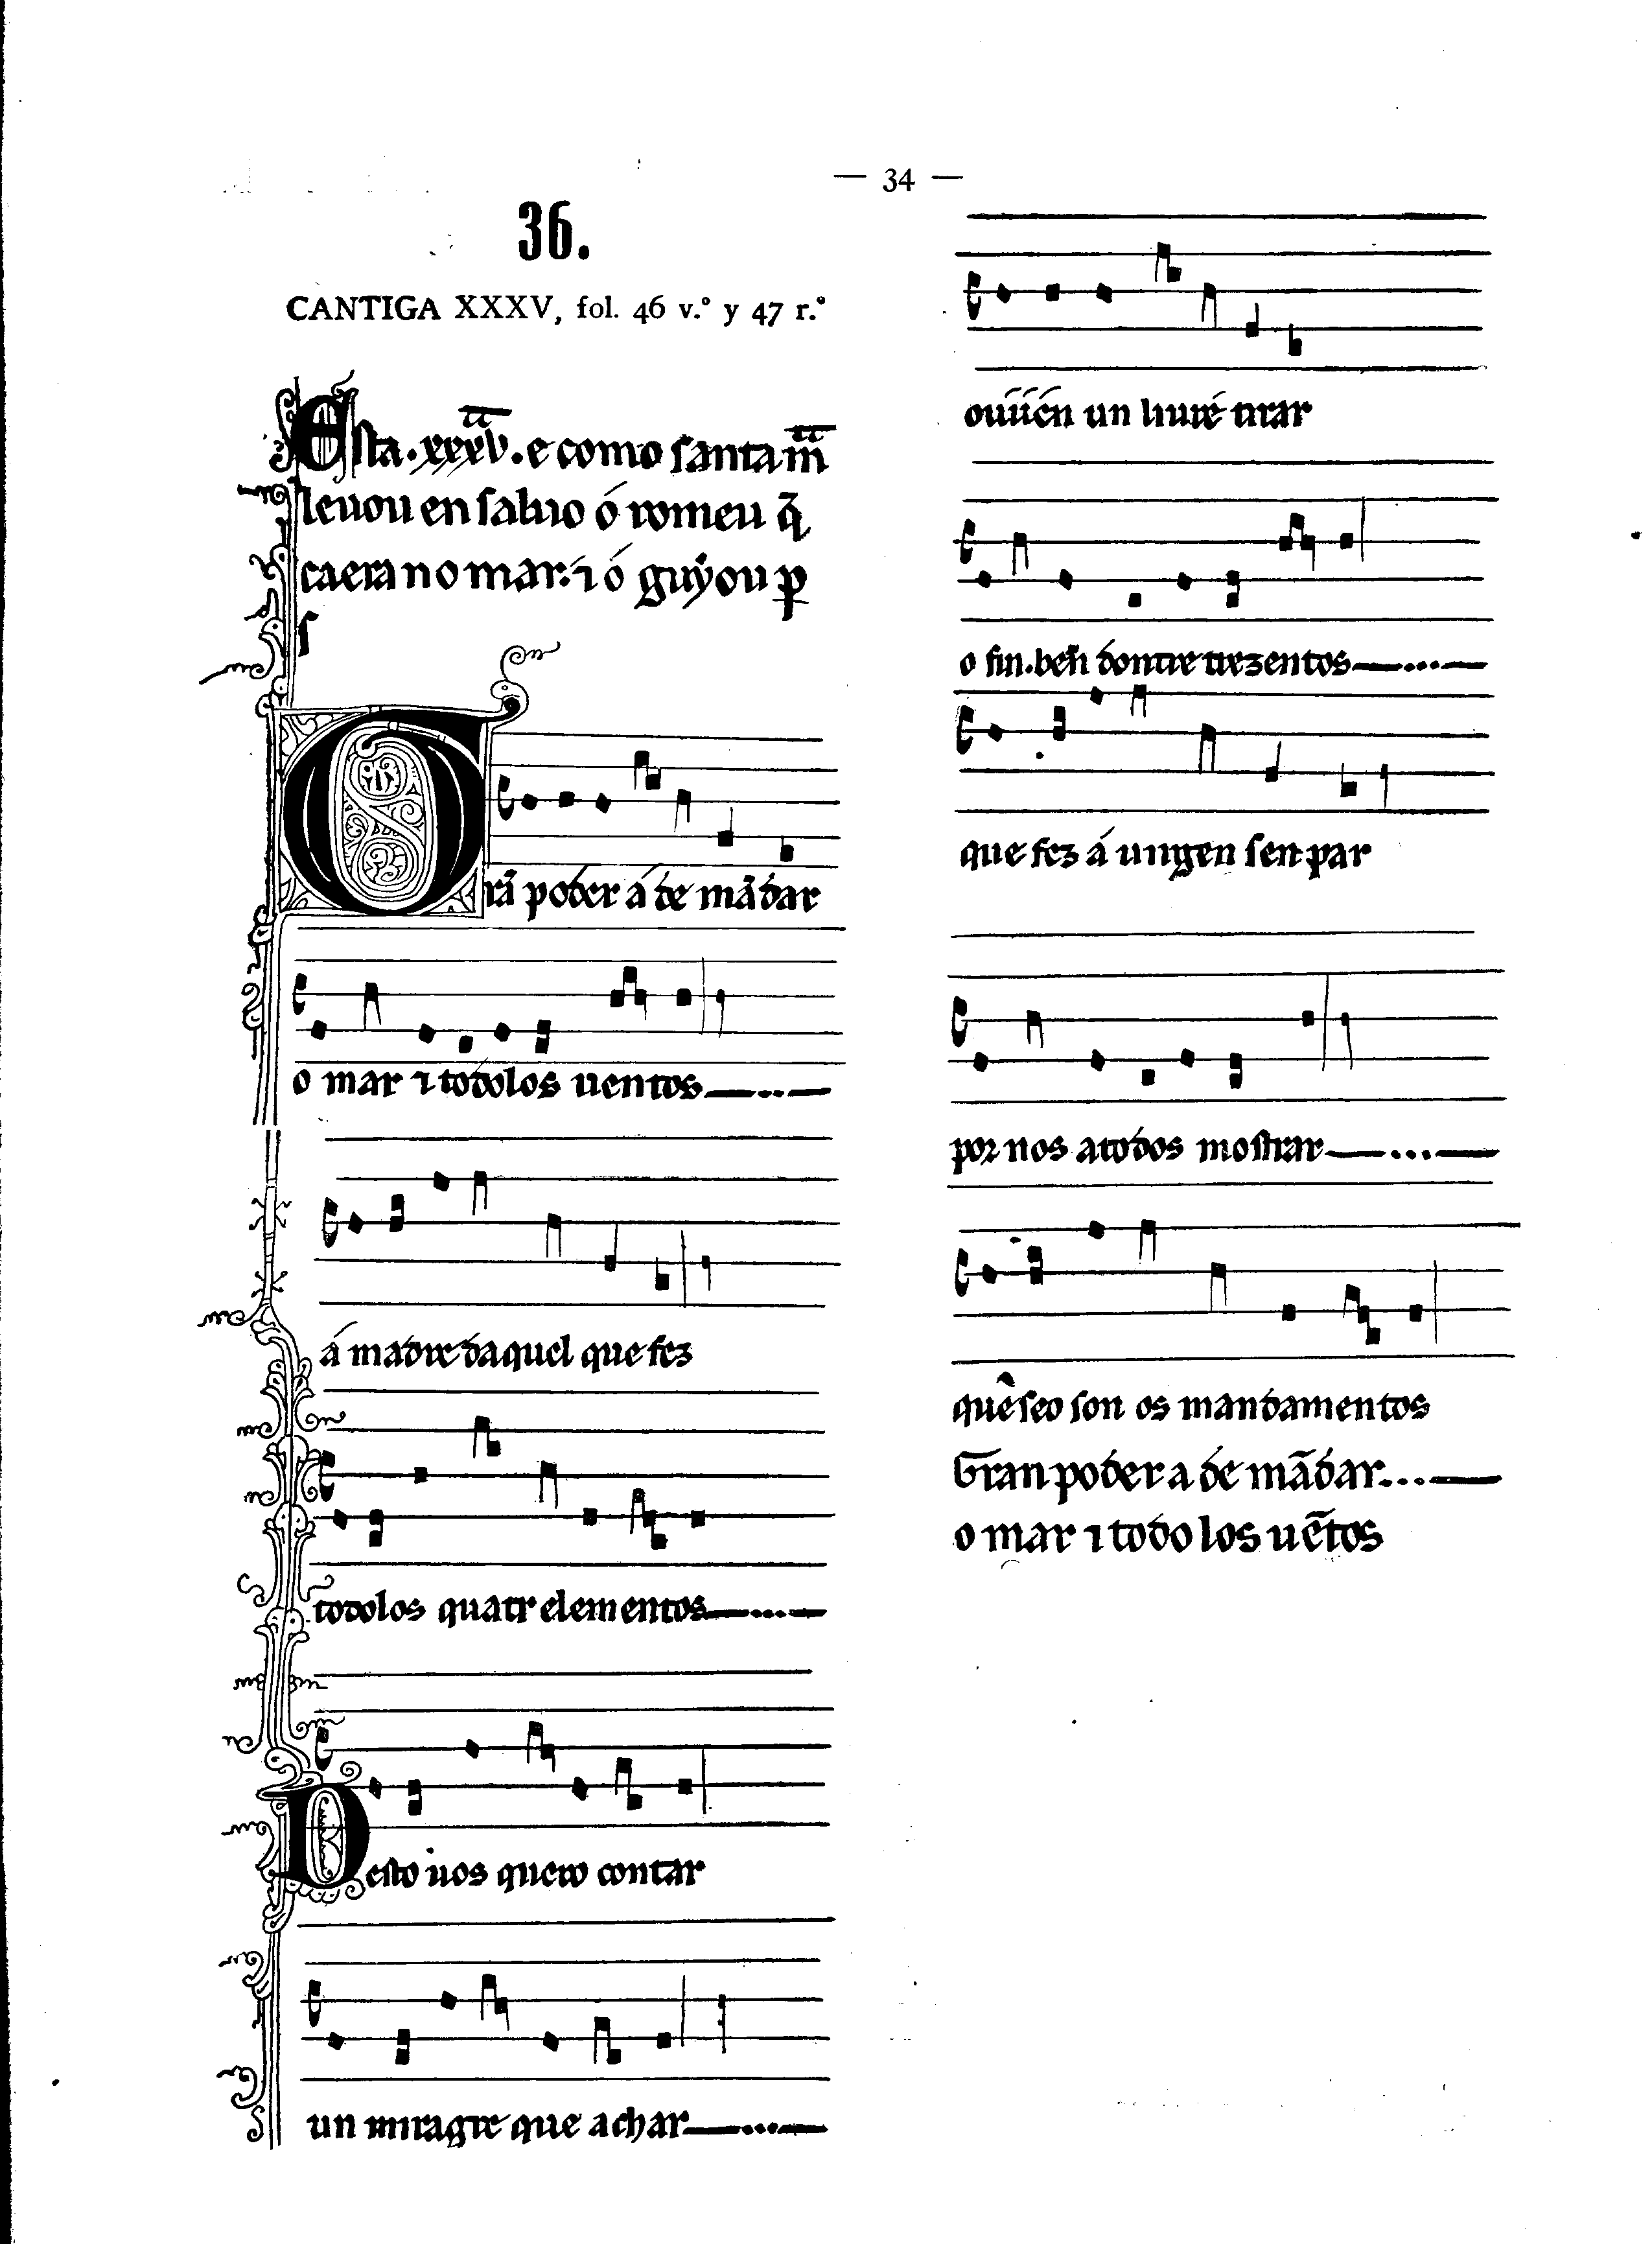 — 34 —
36.
CANTIGA XXXV, fol. 46 v.º y 47 r.º
Esta. xxxv. e como santa m̄
leuou en saluo ó romeu q̄
caera no mar. ⁊ ó guyou ꝑ
Grā poder á de mādar
o mar ⁊ todolos uentos
á madre daquel que fez
todolos quatr elementos
Desto uos quero contar
un miragre que achar
ouuén un liuré tirar
o fin. beñ dontre trezentos
que fez á uirgen sen par
por nos a todos mostrar
que seo son os mandamentos
Gran poder a de mādar...
o mar ⁊ todo los uētos